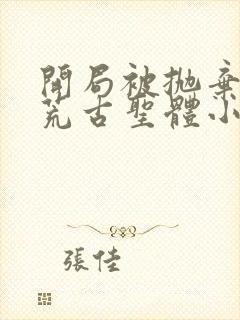 開局被拋棄
荒古聖體小
張佳